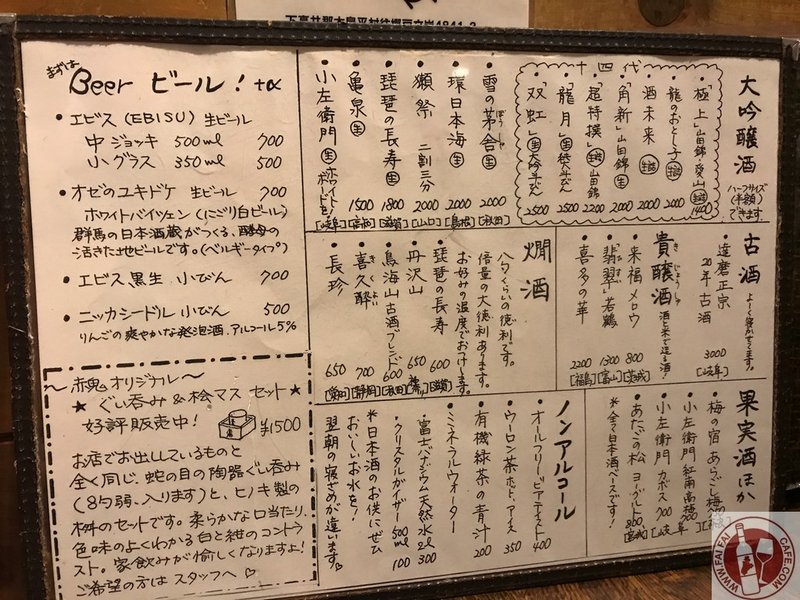 下高井郡木島平村往郷
まずは
Beer ビール! +α
• エビス (EBISU) 生ビール
中 ジョッキ 500ml 700
小 グラス 350ml 500
• オゼのユキドケ 生ビール 700
ホワイトバイツェン (にごり白ビール)
群馬の日本酒蔵がつくる、酵母の
活きた地ビールです。(ベルギータイプ)
• エビス 黒生 小びん 700
• ニッカシードル 小びん 500
りんごの爽やかな発泡酒、アルコール5%
〜赤鬼オリジナル〜
★ ぐい呑み&桧マス セット ★
好評販売中! ¥1500
お店でお出ししているものと
全く同じ、蛇の目の陶器ぐい呑み
(8勺弱、入ります)と、ヒノキ製の
枡のセットです。柔らかな口当たり、
色味のよくわかる白と紺のコントラ
スト。家飲みが愉しくなりますよ!
ご希望の方は スタッフへ♡
大吟醸酒
ハーフサイズ
(半額)
できます
十四代
•「極上」山田錦・愛山 生詰 1400
• 龍のおとし子 生詰 2000
• 酒未来 生詰 2000
•「角新」山田錦 生 2000
•「超特撰」生詰 山田錦 2200
•「龍月」生 2500
•「双虹」生 大吟斗びん 2500
• 雪の茅舎 生 2000 [秋田]
• 環日本海 生 2000 [島根]
• 獺祭 二割三分 2000 [山口]
• 琵琶の長寿 生 1800 [滋賀]
• 亀泉 生 1500 [高知]
• 小左衛門 生 [岐阜]
古酒
よ〜く寝かせてます。
• 達磨正宗
20年古酒 3000 [岐阜]
貴醸酒
きじょうしゅ
酒と米で造る酒!
• 来福 メロウ 800 [茨城]
•「翡翠」若鶴 1300 [富山]
• 喜多の華 2200 [福島]
燗酒
八勺くらいの徳利です。
倍量の大徳利あります。
お好みの温度でおつけします。
• 琵琶の長寿 600 [滋賀]
• 丹沢山 650
• 鳥海山 古酒ブレンド 600 [秋田]
• 喜久酔 700 [静岡]
• 長珍 650 [愛知]
果実酒 ほか
• 梅の宿 あらごし梅酒
• 小左衛門 紅南高梅 700
• 小左衛門 カボス 700 [岐阜]
• あたごの松 ヨーグルト 800 [宮城]
*全て日本酒ベースです!
ノンアルコール
• オールフリー ビアテイスト 400
• ウーロン茶 ホット、アイス 350
• 有機緑茶の青汁 200
• ミネラルウォーター
• 富士バナジウム天然水 2ℓ 300
• クリスタルガイザー 500ml 100
*日本酒のお供にぜひ
おいしいお水を!
翌朝の寝ざめが違います♡
WWW.FAIFAICAFE.COM